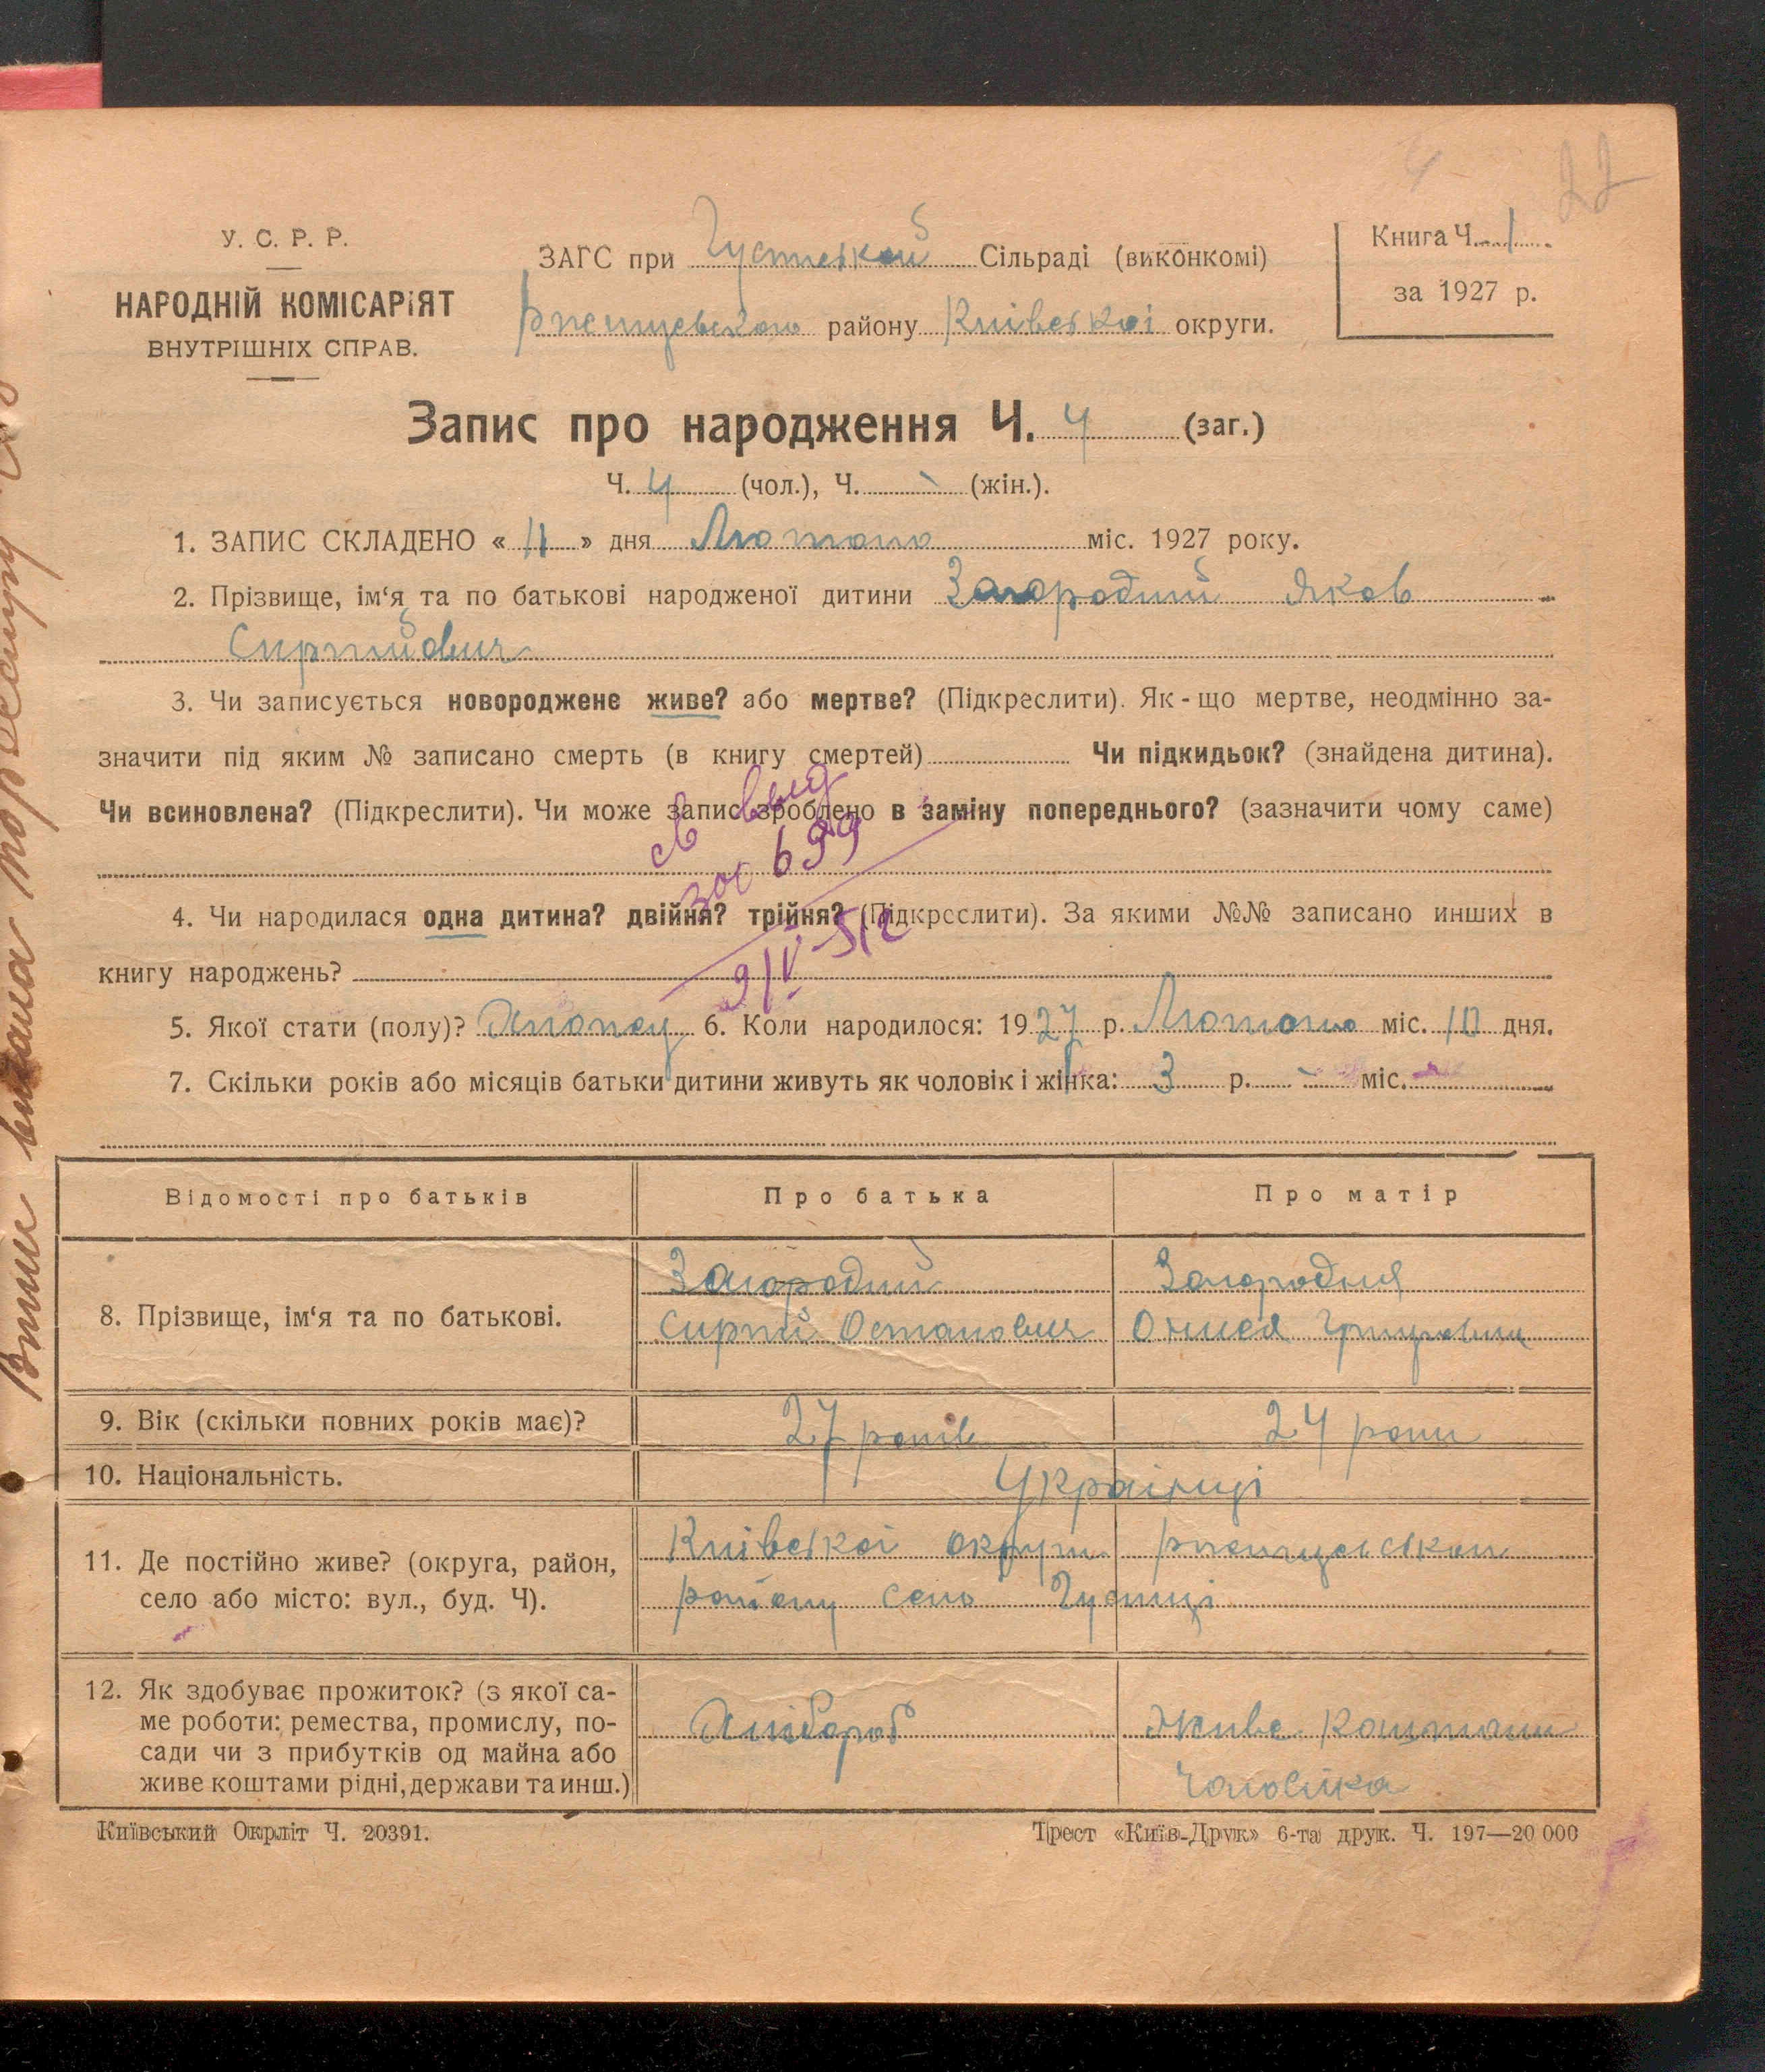 22
У. С. Р. Р.
НАРОДНІЙ КОМІСАРІЯТ
ВНУТРІШНІХ СПРАВ.
ЗАГС при Сільраді (виконкомі)
району Київської округи.
Книга Ч. 1
за 1927 р.
Запис про народження Ч. 4 (заг.)
Ч. 4 (чол.), Ч. - (жін.).
1. ЗАПИС СКЛАДЕНО « 11 » дня Лютого міс. 1927 року.
2. Прізвище, ім‘я та по батькові народженої дитини Загородній Яков
Сиргійович
3. Чи записується новороджене живе? або мертве? (Підкреслити). Як - що мертве, неодмінно за-
значити під яким № записано смерть (в книгу смертей) Чи підкидьок? (знайдена дитина).
Чи всиновлена? (Підкреслити). Чи може запис зроблено в заміну попереднього? (зазначити чому саме)
св выд
699
4. Чи народилася одна дитина? двійня? трійня? (Підкреслити). За якими №№ записано инших в
книгу народжень?
5. Якої стати (полу)? Хлопец 6. Коли народилося: 1927 р. Лютого міс. 10 дня.
7. Скільки років або місяців батьки дитини живуть як чоловік і жінка: 3 р. - міс. -
Відомості про батьків Про батька Про матір
8. Прізвище, ім‘я та по батькові. Загородний Загородня
Сиргій Остапович Онися
9. Вік (скільки повних років має)? 27 років 24 роки
10. Національність. Українці
11. Де постійно живе? (округа, район,
село або місто: вул., буд. Ч).
Київської округи
району село
12. Як здобуває прожиток? (з якої са-
ме роботи: ремества, промислу, по-
сади чи з прибутків од майна або
живе коштами рідні, держави та инш.)
Хлібороб живе коштами
чоловіка
Київський Окрліт Ч. 20391. Трест «Київ-Друк» 6-та друк. Ч. 197—20 000